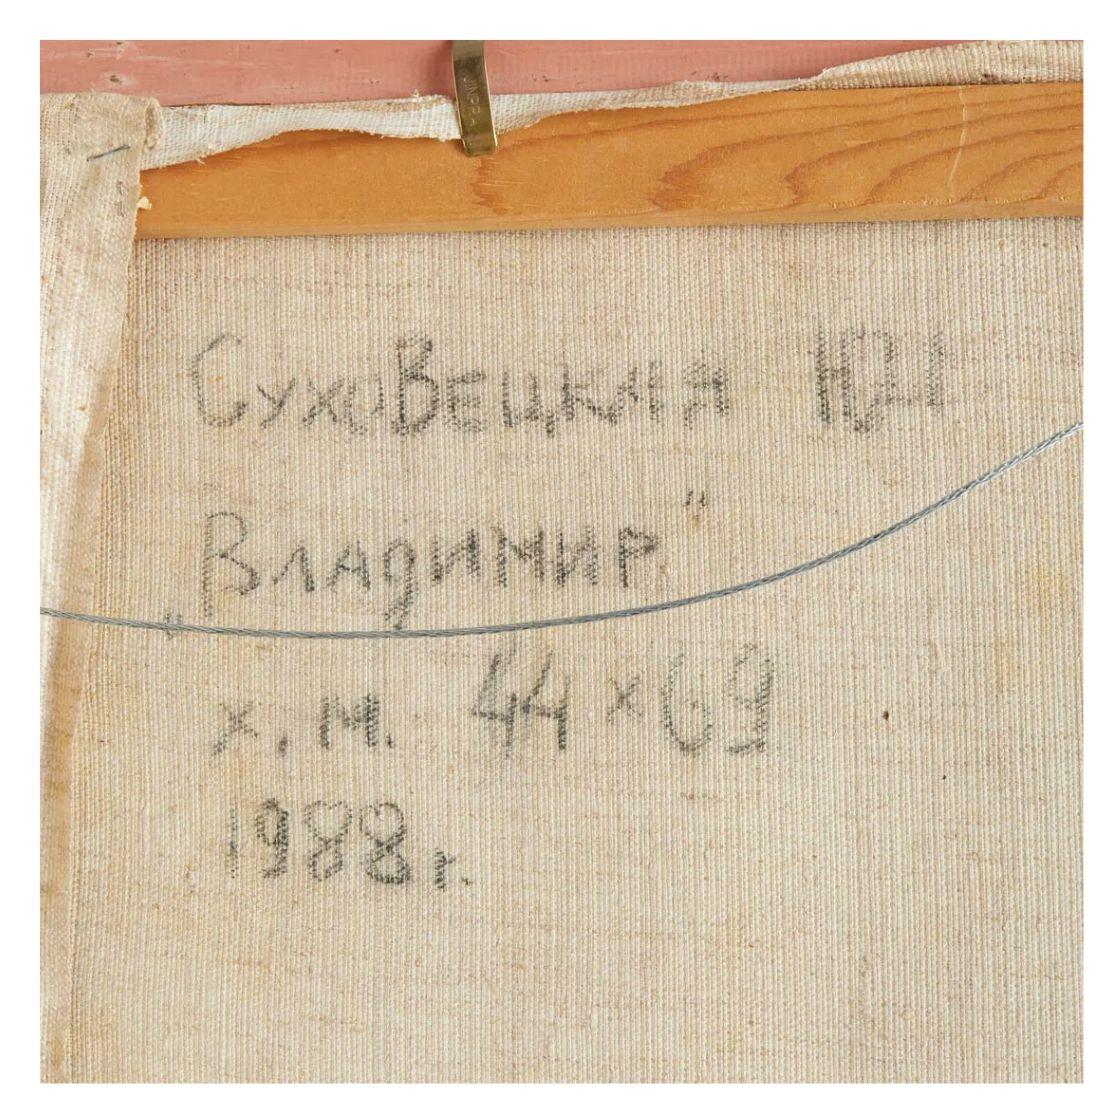 Суховецкая ЮИ
„Владимир"
х.м. 44 х 69
1988г.